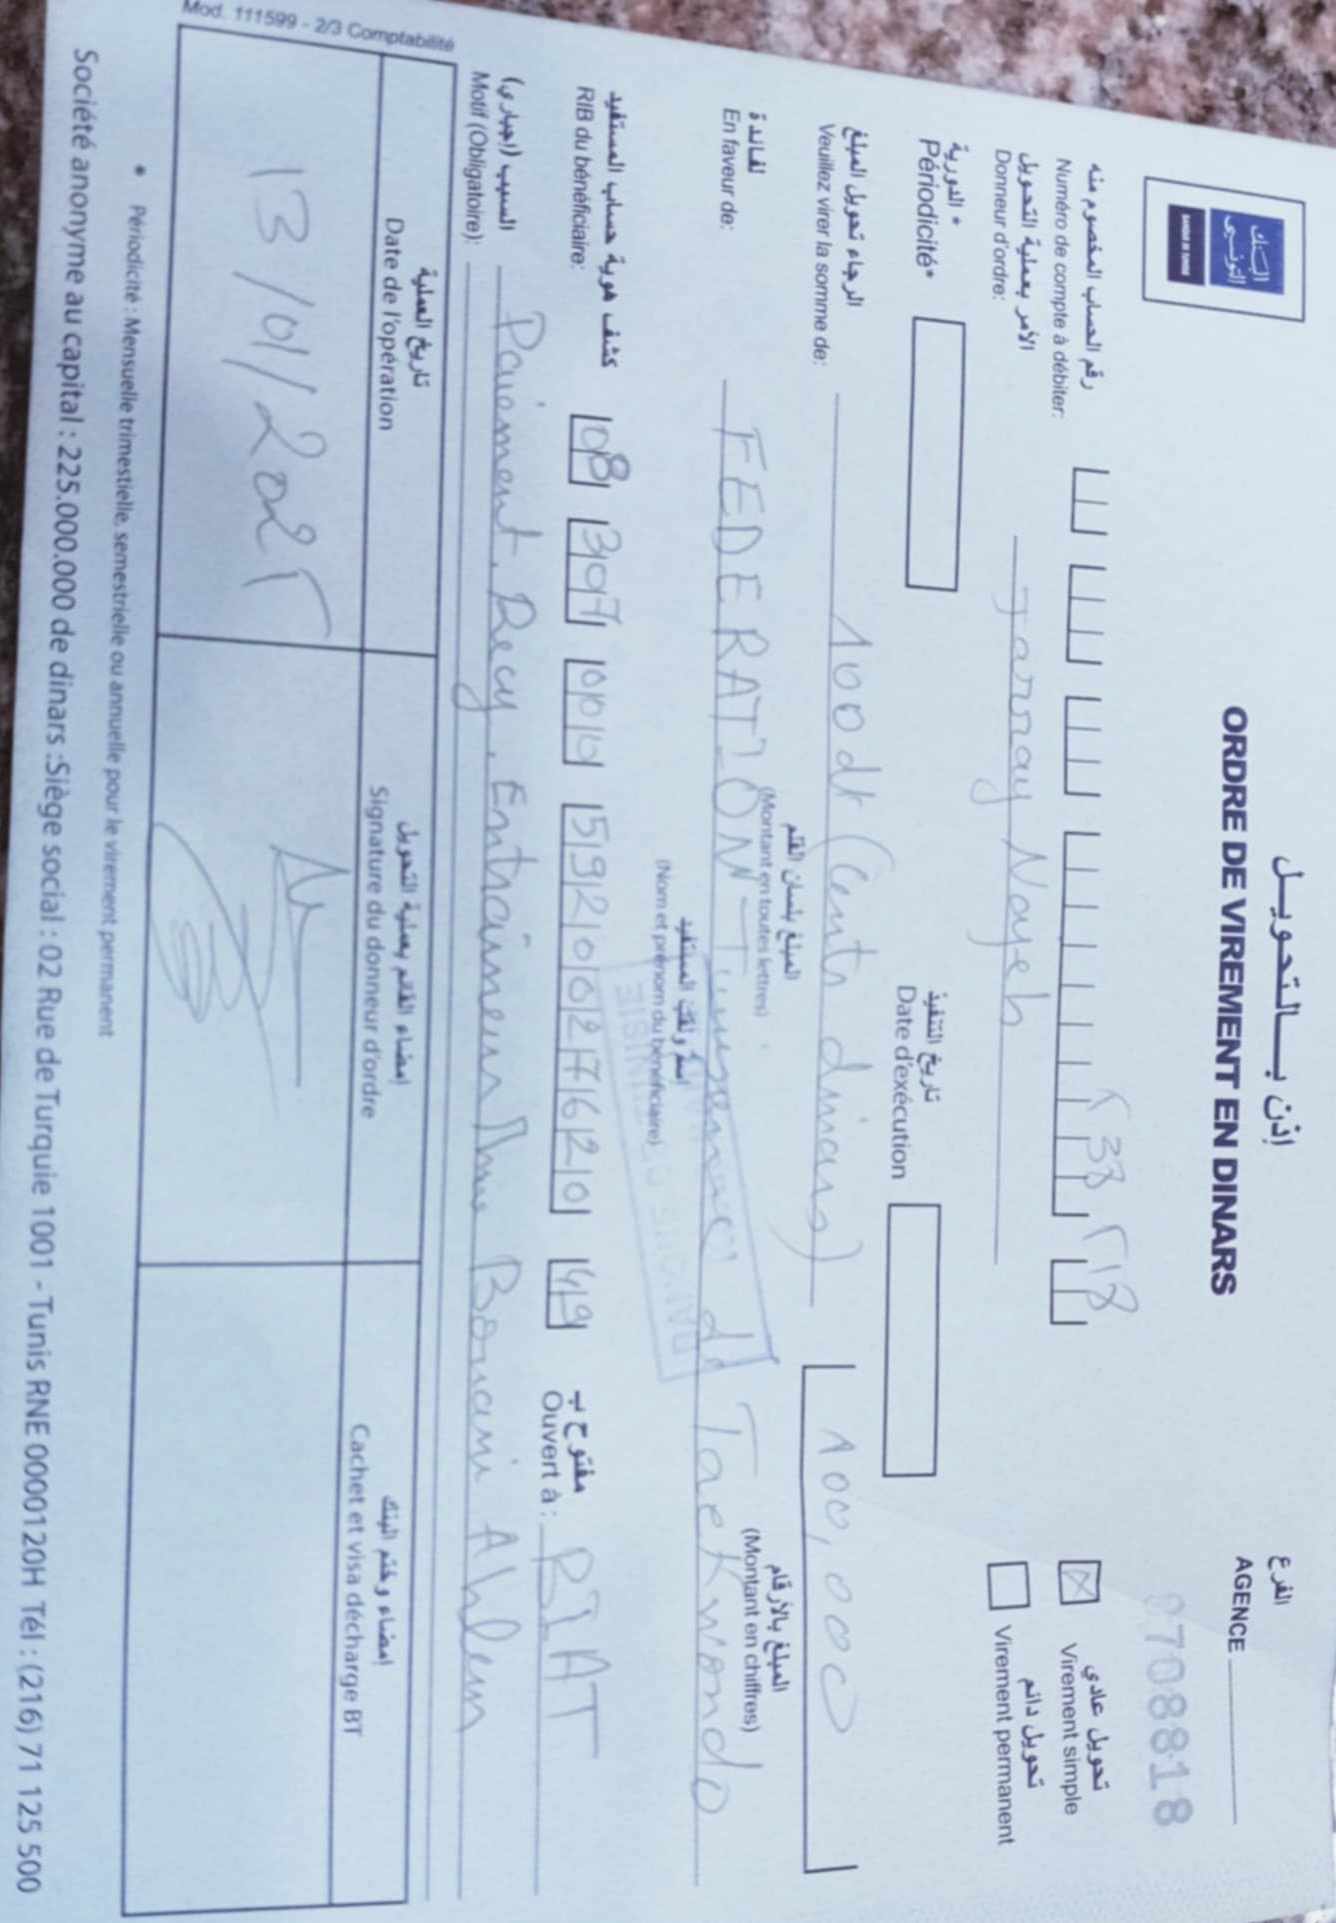 البنك التونسي
BANQUE DE TUNISIE
إذن بـــالتحويــل
ORDRE DE VIREMENT EN DINARS
الفرع
AGENCE
0708818
رقم الحساب المخصوم منه
Numéro de compte à débiter:
تحويل عادي
Virement simple
الآمر بعملية التحويل
Donneur d'ordre: Jarray Nayeh
تحويل دائم
Virement permanent
* الدورية
Périodicité*
تاريخ التنفيذ
Date d'exécution
الرجاء تحويل المبلغ
Veuillez virer la somme de: 100 dt (Cents dinars) 100,000
المبلغ بلسان القلم
(Montant en toutes lettres)
المبلغ بالأرقام
(Montant en chiffres)
لفائدة
En faveur de: FEDERATION Tunisienne de Taekwondo
اسم ولقب المستفيد
(Nom et prénom du bénéficiaire)
كشف هوية حساب المستفيد
RIB du bénéficiaire: 08 397 000 5920027620 49
مفتوح ب
Ouvert à : BIAT
السبب (إجباري)
Motif (Obligatoire): Paiement Recy. Entraineur Mme Bouani Ahlem
تاريخ العملية
Date de l'opération
إمضاء القائم بعملية التحويل
Signature du donneur d'ordre
إمضاء وختم البنك
Cachet et visa décharge BT
13/01/2025
Mod. 111599 - 2/3 Comptabilité
* Périodicité : Mensuelle trimestielle, semestrielle ou annuelle pour le virement permanent
Société anonyme au capital : 225.000.000 de dinars :Siège social : 02 Rue de Turquie 1001 - Tunis RNE 0000120H Tél : (216) 71 125 500